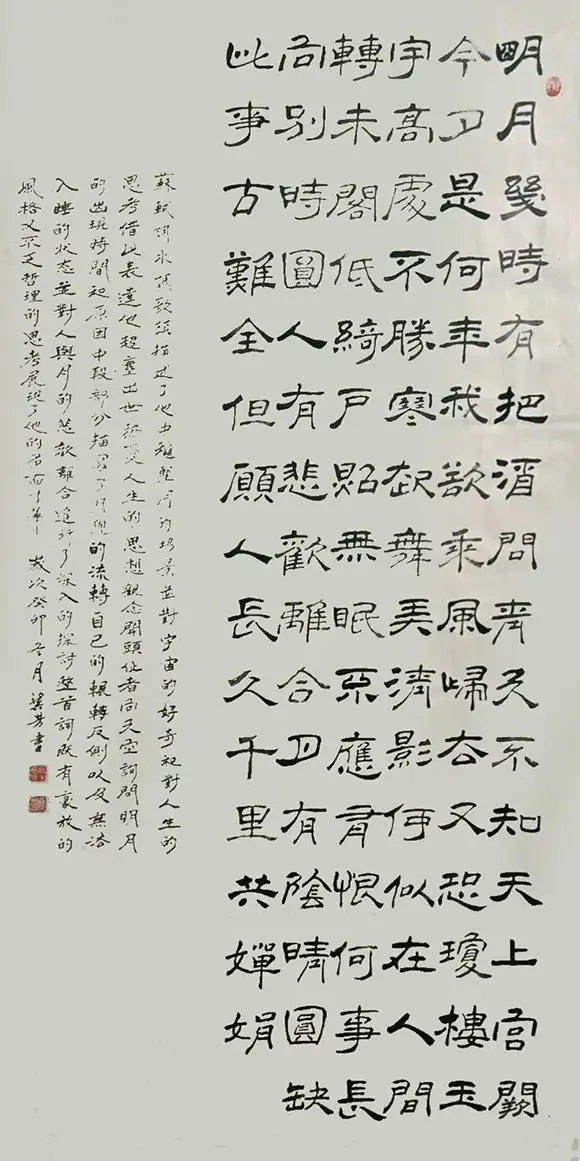 明月幾時有把酒問青天不知天上宮闕
今夕是何年我欲乘風歸去又恐瓊樓玉
宇高處不勝寒起舞弄清影何似在人間
轉朱閣低綺戶照無眠不應有恨何事長
向別時圓人有悲歡離合月有陰晴圓缺
此事古難全但願人長久千里共嬋娟
蘇軾的水調歌頭描述了他中秋望月的場景並對宇宙的好奇和對人生的
思考借此表達他超塵出世熱愛人生的思想觀念開頭作者向天空詢問明月
的出現時間和原因中段部分描寫了月光的流轉自己的輾轉反側以及無法
入睡的狀态並對人與月的悲歡離合進行了深入的探討整首詞既有豪放的
風格又不乏哲理的思考展現了他的才華 歲次癸卯冬月 芳書